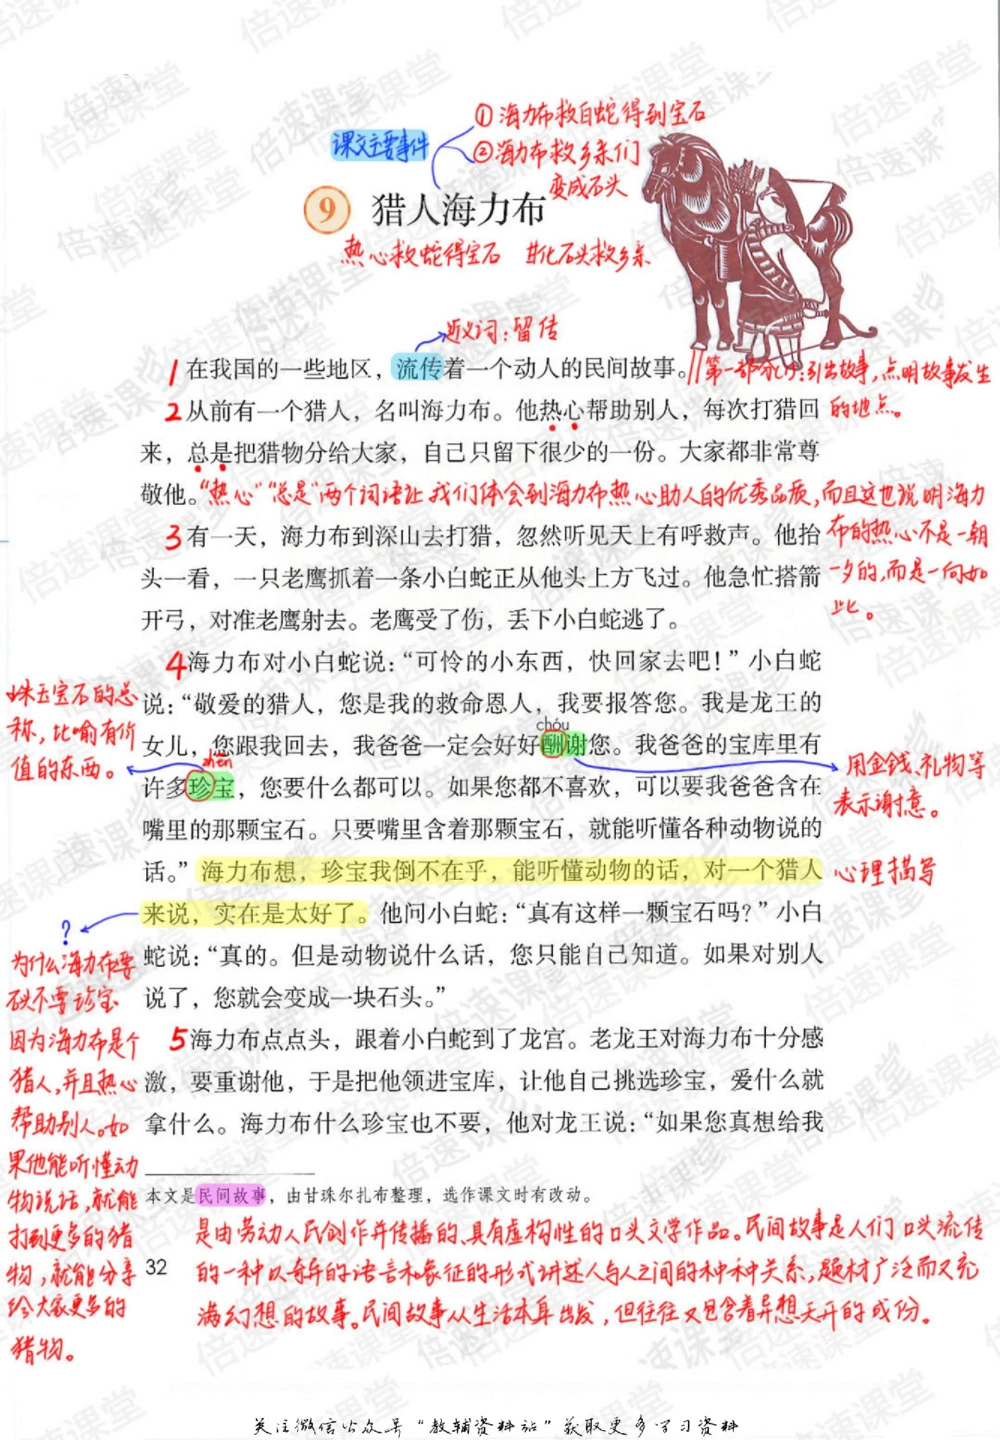 课文主要事件
①海力布救白蛇得到宝石
②海力布救乡亲们
变成石头
9 猎人海力布
热心救蛇得宝石 甘化石头救乡亲
近义词：留传
1 在我国的一些地区，流传着一个动人的民间故事。//
第一部分(1)：引出故事，点明故事发生
的地点。
2 从前有一个猎人，名叫海力布。他热心帮助别人，每次打猎回
来，总是把猎物分给大家，自己只留下很少的一份。大家都非常尊
敬他。
“热心”“总是”两个词语让我们体会到海力布热心助人的优秀品质，而且这也说明海力
布的热心不是一朝
一夕的，而是一向如
此。
3 有一天，海力布到深山去打猎，忽然听见天上有呼救声。他抬
头一看，一只老鹰抓着一条小白蛇正从他头上方飞过。他急忙搭箭
开弓，对准老鹰射去。老鹰受了伤，丢下小白蛇逃了。
4 海力布对小白蛇说：“可怜的小东西，快回家去吧！”小白蛇
说：“敬爱的猎人，您是我的救命恩人，我要报答您。我是龙王的
chóu
女儿，您跟我回去，我爸爸一定会好好酬谢您。我爸爸的宝库里有
zhēn
许多珍宝，您要什么都可以。如果您都不喜欢，可以要我爸爸含在
嘴里的那颗宝石。只要嘴里含着那颗宝石，就能听懂各种动物说的
话。”海力布想，珍宝我倒不在乎，能听懂动物的话，对一个猎人
来说，实在是太好了。他问小白蛇：“真有这样一颗宝石吗？”小白
蛇说：“真的。但是动物说什么话，您只能自己知道。如果对别人
说了，您就会变成一块石头。”
珠玉宝石的总
称，比喻有价
值的东西。
用金钱、礼物等
表示谢意。
心理描写
?
为什么海力布要
不要珍宝
因为海力布是个
猎人，并且热心
帮助别人。如
果他能听懂动
物说话，就能
打到更多的猎
物，就能分享
给大家更多的
猎物。
5 海力布点点头，跟着小白蛇到了龙宫。老龙王对海力布十分感
激，要重谢他，于是把他领进宝库，让他自己挑选珍宝，爱什么就
拿什么。海力布什么珍宝也不要，他对龙王说：“如果您真想给我
本文是民间故事，由甘珠尔扎布整理，选作课文时有改动。
是由劳动人民创作并传播的、具有虚构性的口头文学作品。民间故事是人们口头流传
的一种以奇异的语言和象征的形式讲述人与人之间的种种关系，题材广泛而又充
满幻想的故事。民间故事从生活本身出发，但往往又包含着异想天开的成份。
32
关注微信公众号“教辅资料站”获取更多学习资料
倍速课堂